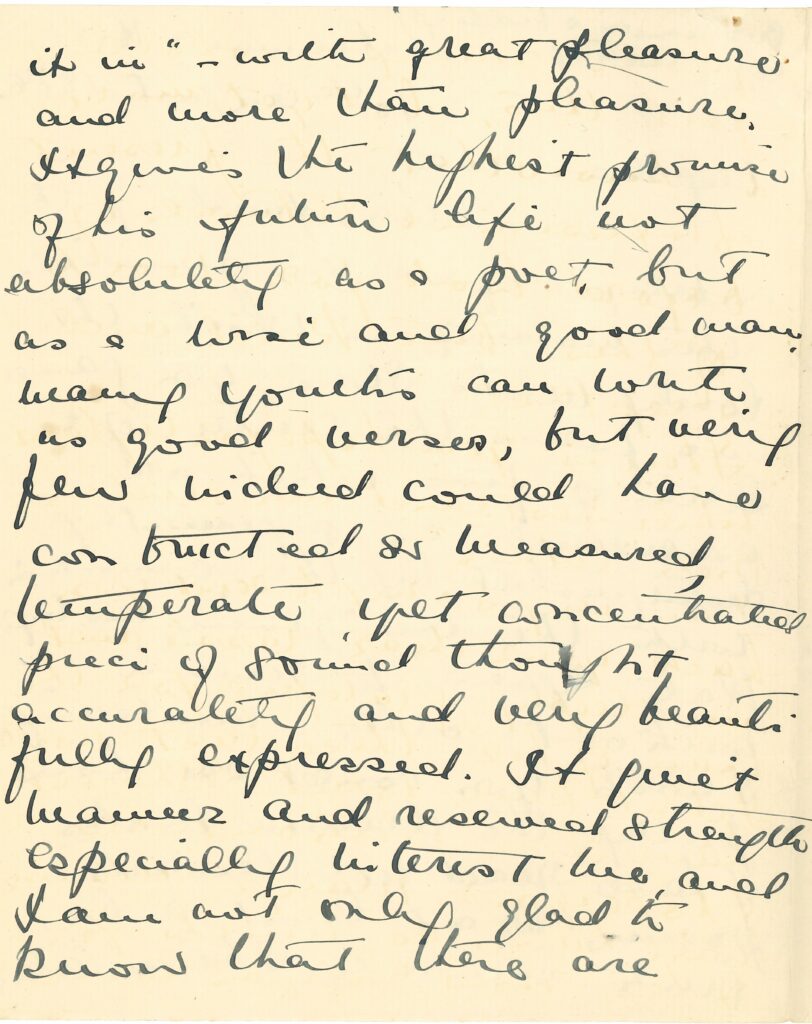 it in" – with great pleasure
and more than pleasure.
It gives the highest promise
of his future life not
absolutely as a poet, but
as a wise and good man.
many youths can write
as good verses, but very
few indeed could have
constructed so measured,
temperate, yet concentrated
piece of sound thought
accurately and very beauti
fully expressed. It quiet
manner and reserved strength
especially interest me, and
I am not only glad to
know that there are